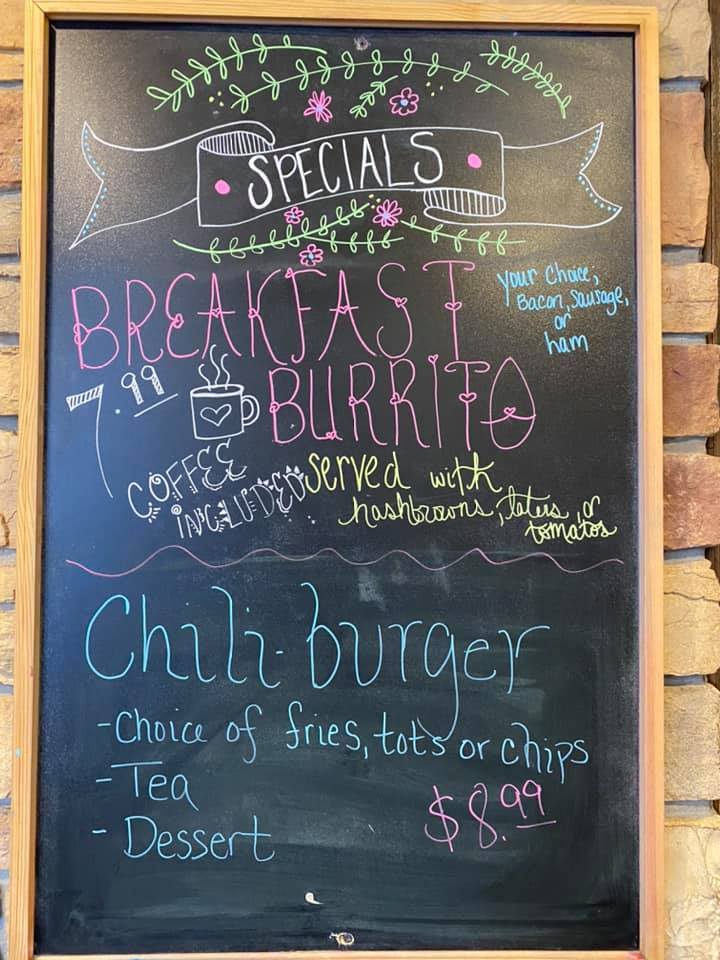 SPECIALS
BREAKFAST
BURRITO
Your Choice,
Bacon, Sausage,
or
ham
7.99
COFFEE
INCLUDED
served with
hashbrowns, taters, or
tomatos
Chili-burger
-Choice of fries, tots or chips
-Tea
- Dessert
$8.99